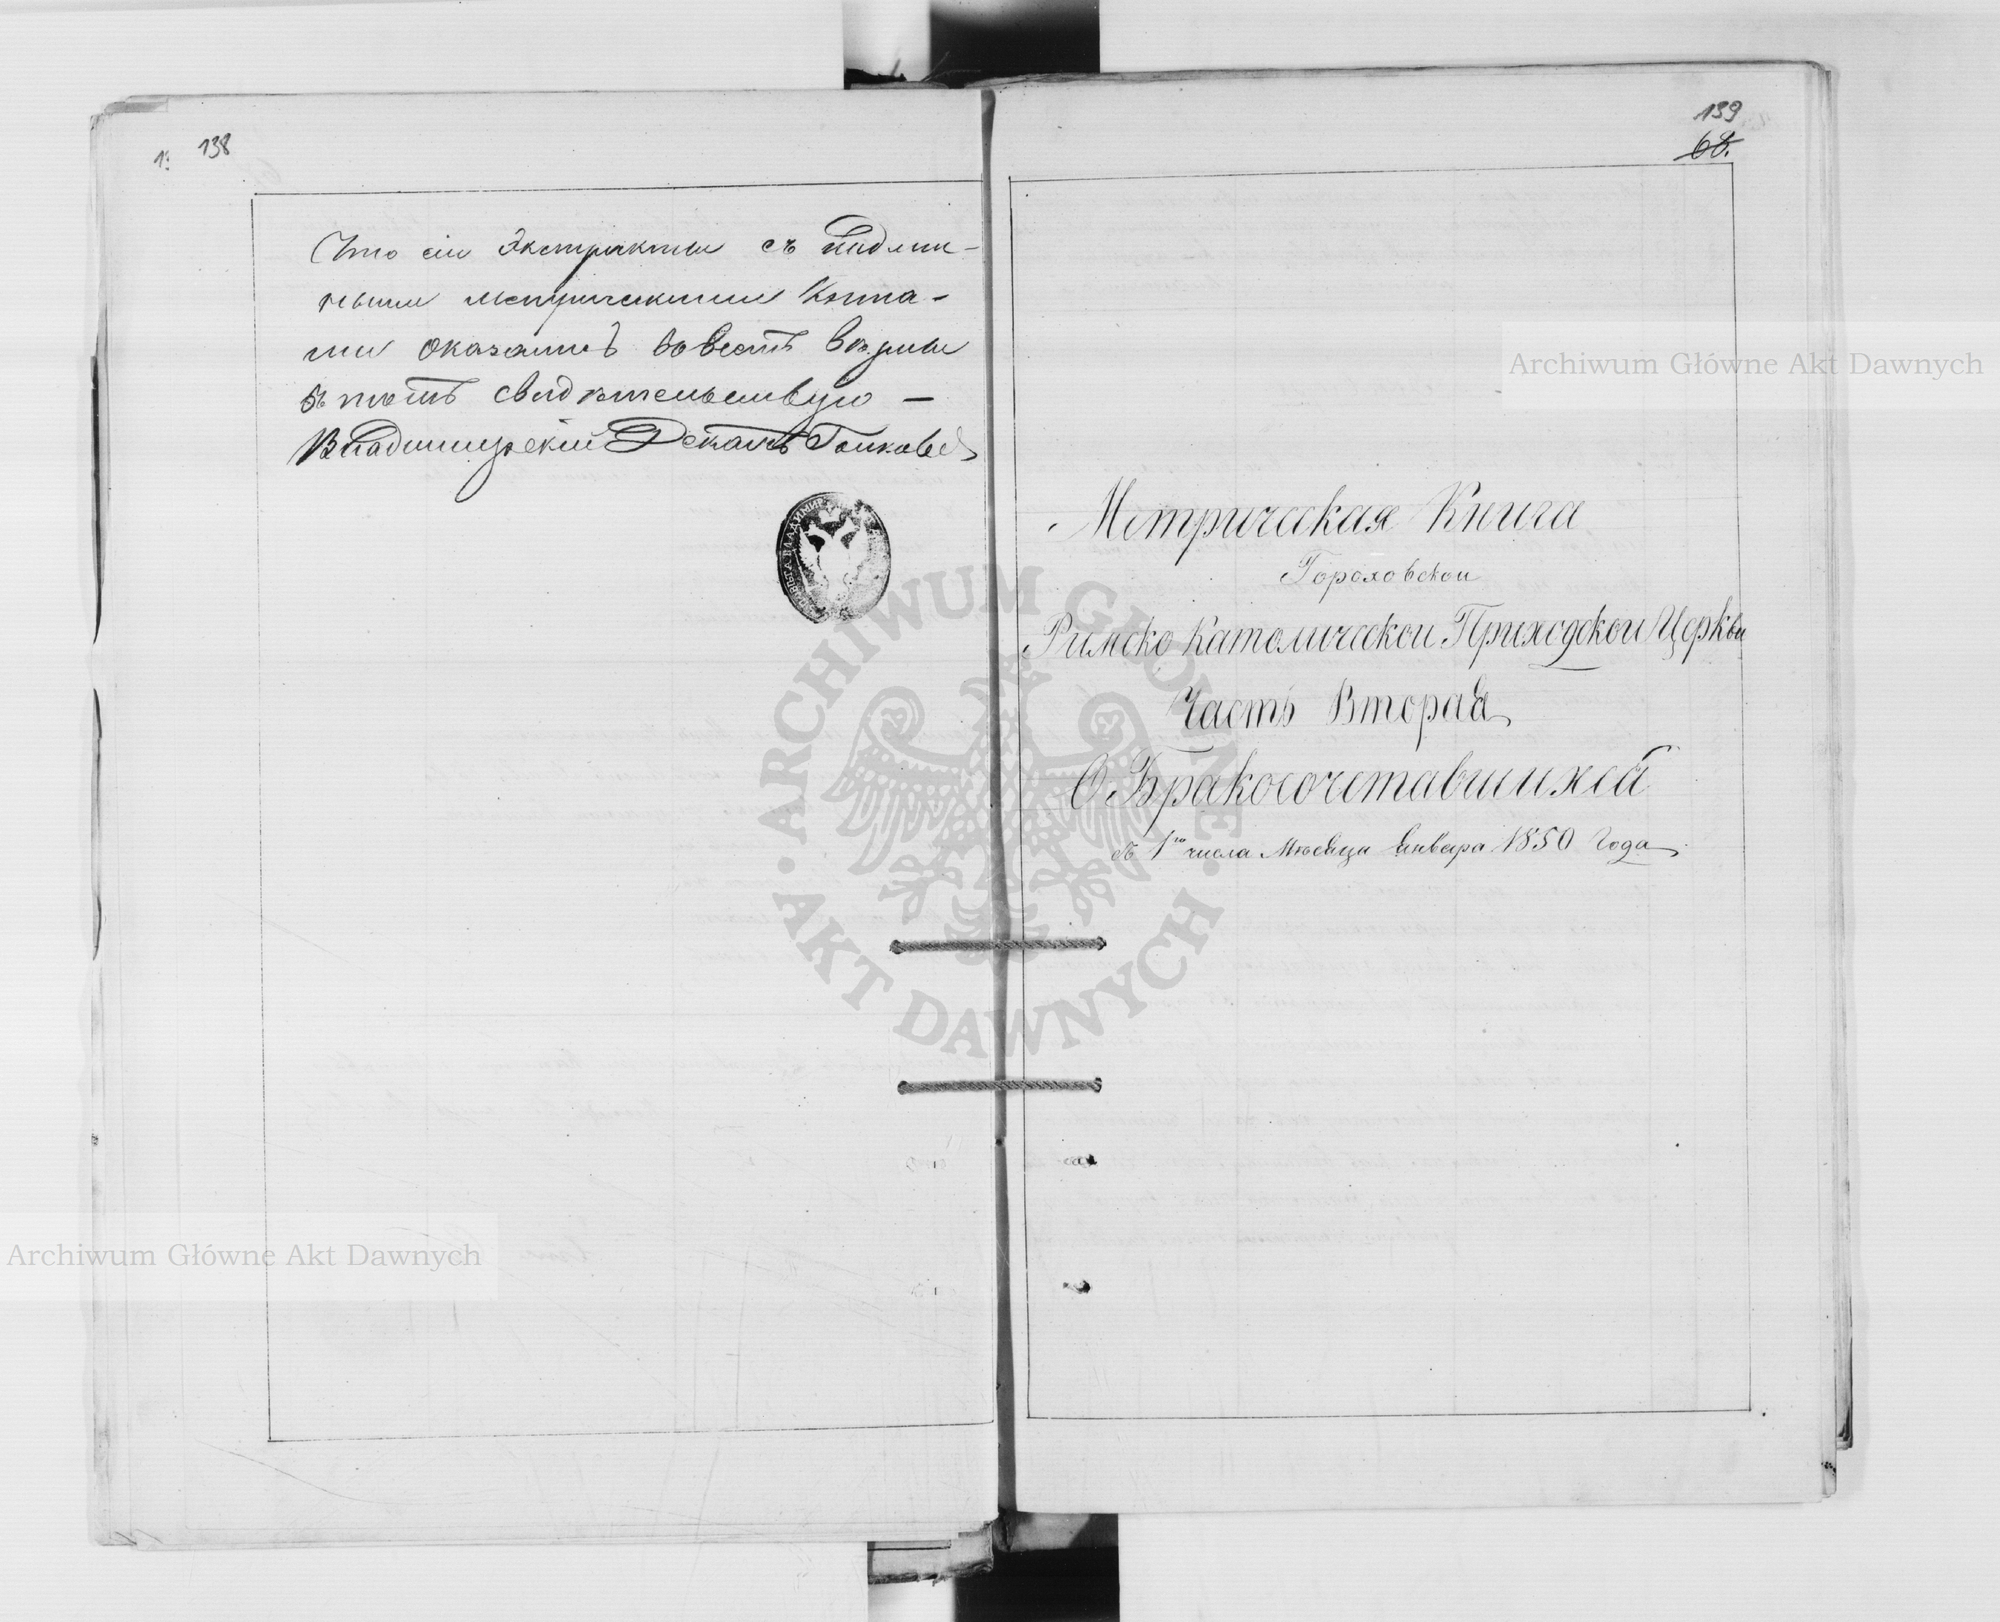 138
Что сіи Экстракты съ подлин-
ными метрическими Книга-
ми оказались во всемъ вѣрны
въ томъ свидѣтельствую —
Владимирскій Деканъ
139
68.
Метрическая Книга
Гороховской
Римско Католической Приходской Церкви
Часть Вторая
О Бракосочетавшихся
съ 1го числа Мѣсяца Января 1850 Года
Archiwum Główne Akt Dawnych
ARCHIWUM GŁÓWNE AKT DAWNYCH
Archiwum Główne Akt Dawnych